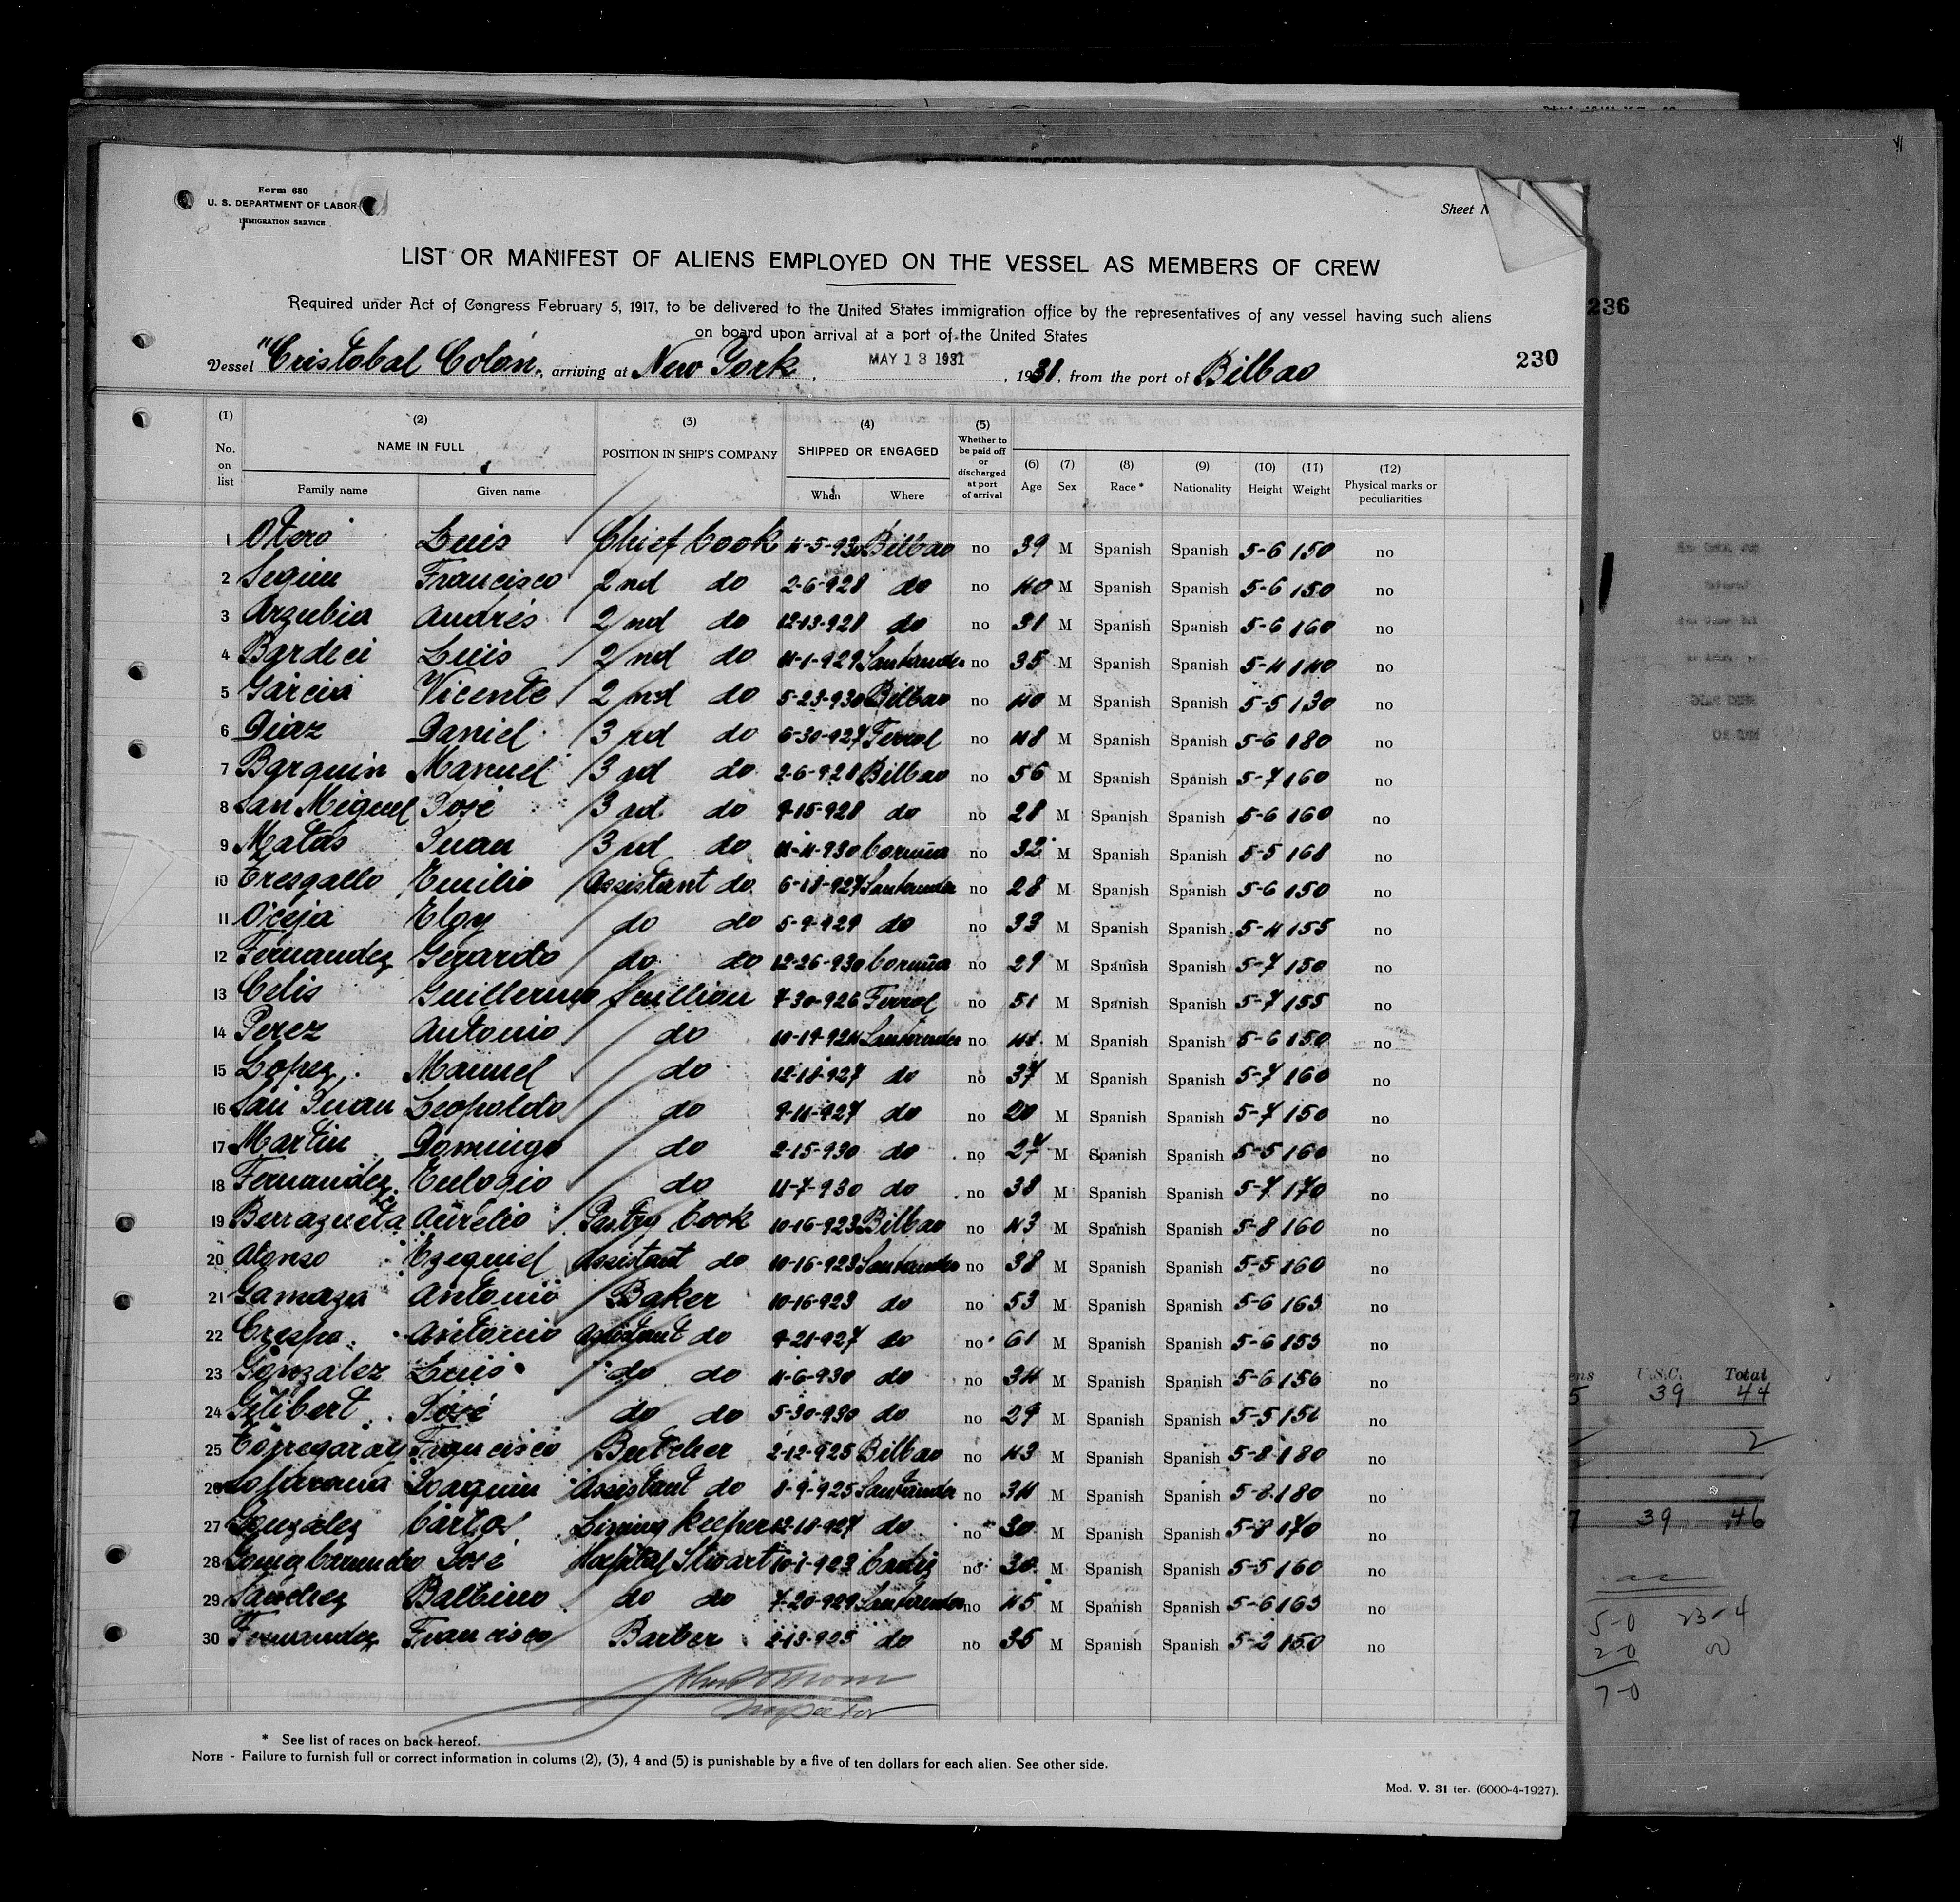 Form 680
U. S. DEPARTMENT OF LABOR
IMMIGRATION SERVICE
Sheet N
LIST OR MANIFEST OF ALIENS EMPLOYED ON THE VESSEL AS MEMBERS OF CREW
Required under Act of Congress February 5, 1917, to be delivered to the United States immigration office by the representatives of any vessel having such aliens
on board upon arrival at a port of the United States
236
Vessel "Cristobal Colón", arriving at New York, MAY 13 1931, 1931, from the port of Bilbao
230
(1) No. on list (2) NAME IN FULL Family name Given name (3) POSITION IN SHIP'S COMPANY (4) SHIPPED OR ENGAGED When Where (5) Whether to be paid off or discharged at port of arrival (6) Age (7) Sex (8) Race * (9) Nationality (10) Height (11) Weight (12) Physical marks or peculiarities
1 Otero Luis Chief Cook 4-5-930 Bilbao no 39 M Spanish Spanish 5-6 150 no
2 Seguin Francisco 2nd do 2-6-928 do no 40 M Spanish Spanish 5-6 150 no
3 Arzubia Andrés 2nd do 12-13-928 do no 31 M Spanish Spanish 5-6 160 no
4 Bardeci Luis 2nd do 4-1-929 Santander no 35 M Spanish Spanish 5-4 140 no
5 Garcia Vicente 2nd do 5-23-930 Bilbao no 40 M Spanish Spanish 5-5 130 no
6 Diaz Daniel 3rd do 6-30-927 Ferrol no 48 M Spanish Spanish 5-6 180 no
7 Barquin Manuel 3rd do 2-6-928 Bilbao no 56 M Spanish Spanish 5-7 160 no
8 San Miguel José 3rd do 9-15-928 do no 28 M Spanish Spanish 5-6 160 no
9 Matas Juan 3rd do 4-930 Coruña no 32 M Spanish Spanish 5-5 168 no
10 Tresgallo Emilio Assistant do 6-18-927 Santander no 28 M Spanish Spanish 5-6 150 no
11 Oceja Eloy do do 5-9-929 do no 33 M Spanish Spanish 5-4 155 no
12 Fernandez Gerardo do do 12-26-930 Coruña no 29 M Spanish Spanish 5-7 150 no
13 Celis Guillermo Scullion 7-30-926 Ferrol no 51 M Spanish Spanish 5-7 155 no
14 Perez Antonio do 10-19-924 Santander no 41 M Spanish Spanish 5-6 150 no
15 Lopez Manuel do 12-18-927 do no 37 M Spanish Spanish 5-7 160 no
16 San Juan Leopoldo do 9-927 do no 20 M Spanish Spanish 5-7 150 no
17 Martin Domingo do 2-15-930 do no 27 M Spanish Spanish 5-5 160 no
18 Fernandez Eulogio do 11-7-930 do no 38 M Spanish Spanish 5-7 170 no
19 Berragueta Aurelio Pastry Cook 10-16-923 Bilbao no 43 M Spanish Spanish 5-8 160 no
20 Alonso Ezequiel Assistant do 10-16-923 Santander no 38 M Spanish Spanish 5-5 160 no
21 Gamaza Antonio Baker 10-16-923 do no 53 M Spanish Spanish 5-6 163 no
22 Crespo Antonio Assistant do 9-21-927 do no 61 M Spanish Spanish 5-6 153 no
23 Gonzalez Luis do do 4-6-930 do no 34 M Spanish Spanish 5-6 156 no
24 Gilibert José do do 5-30-930 do no 29 M Spanish Spanish 5-5 no
25 Torregaray Francisco Butcher 2-12-925 Bilbao no 43 M Spanish Spanish 5-8 180 no
26 Joaquin Assistant do 8-9-925 Santander no 34 M Spanish Spanish 5-8 180 no
27 Gonzalez Carlos Keeper 12-18-927 do no 30 M Spanish Spanish 5-8 170 no
28 José Hospital Stwart 10-1-923 Cadiz no 30 M Spanish Spanish 5-5 160 no
29 Sanchez Balbino do do 7-20-929 Santander no 45 M Spanish Spanish 5-6 163 no
30 Fernandez Francisco Barber 2-13-925 do no 35 M Spanish Spanish 5-2 150 no
Inspector
* See list of races on back hereof.
NOTE - Failure to furnish full or correct information in colums (2), (3), 4 and (5) is punishable by a five of ten dollars for each alien. See other side.
Mod. V. 31 ter. (6000-4-1927).
ens U.S.C. Total
5 39 44
2
7 39 46
5-0 23-4
2-0
7-0